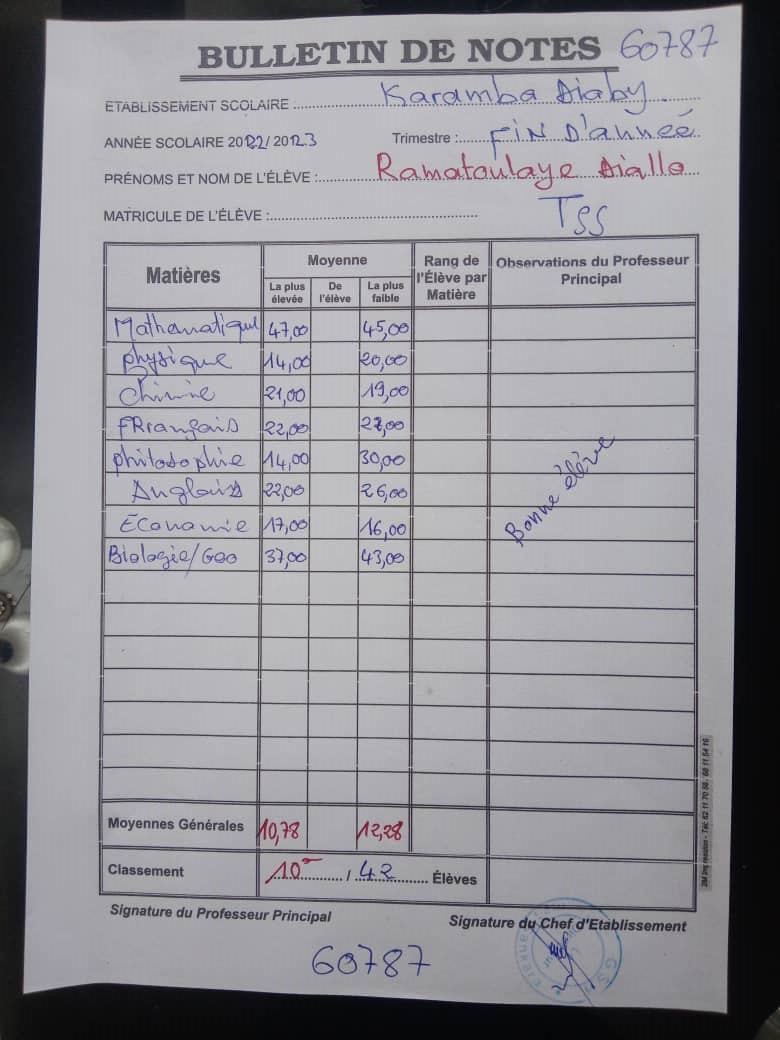 BULLETIN DE NOTES 60787
ETABLISSEMENT SCOLAIRE : Karamba Diaby
ANNÉE SCOLAIRE 2022/ 2023 Trimestre : FIN D'année
PRÉNOMS ET NOM DE L'ÉLÈVE : Ramatoulaye Diallo
MATRICULE DE L'ÉLÈVE : TSS
Matières Moyenne Rang de l'Élève par Matière Observations du Professeur Principal
La plus élevée De l'élève La plus faible
Mathematique 47,00 45,00
physique 14,00 20,00
chimie 21,00 19,00
FRrançais 22,00 27,00
philosophie 14,00 30,00
Anglais 22,00 26,00
Économie 17,00 16,00
Biologie/Geo 37,00 43,00
Bonne élève
Moyennes Générales 10,78 12,28
Classement 10e / 42 Élèves
Signature du Professeur Principal Signature du Chef d'Etablissement
60787